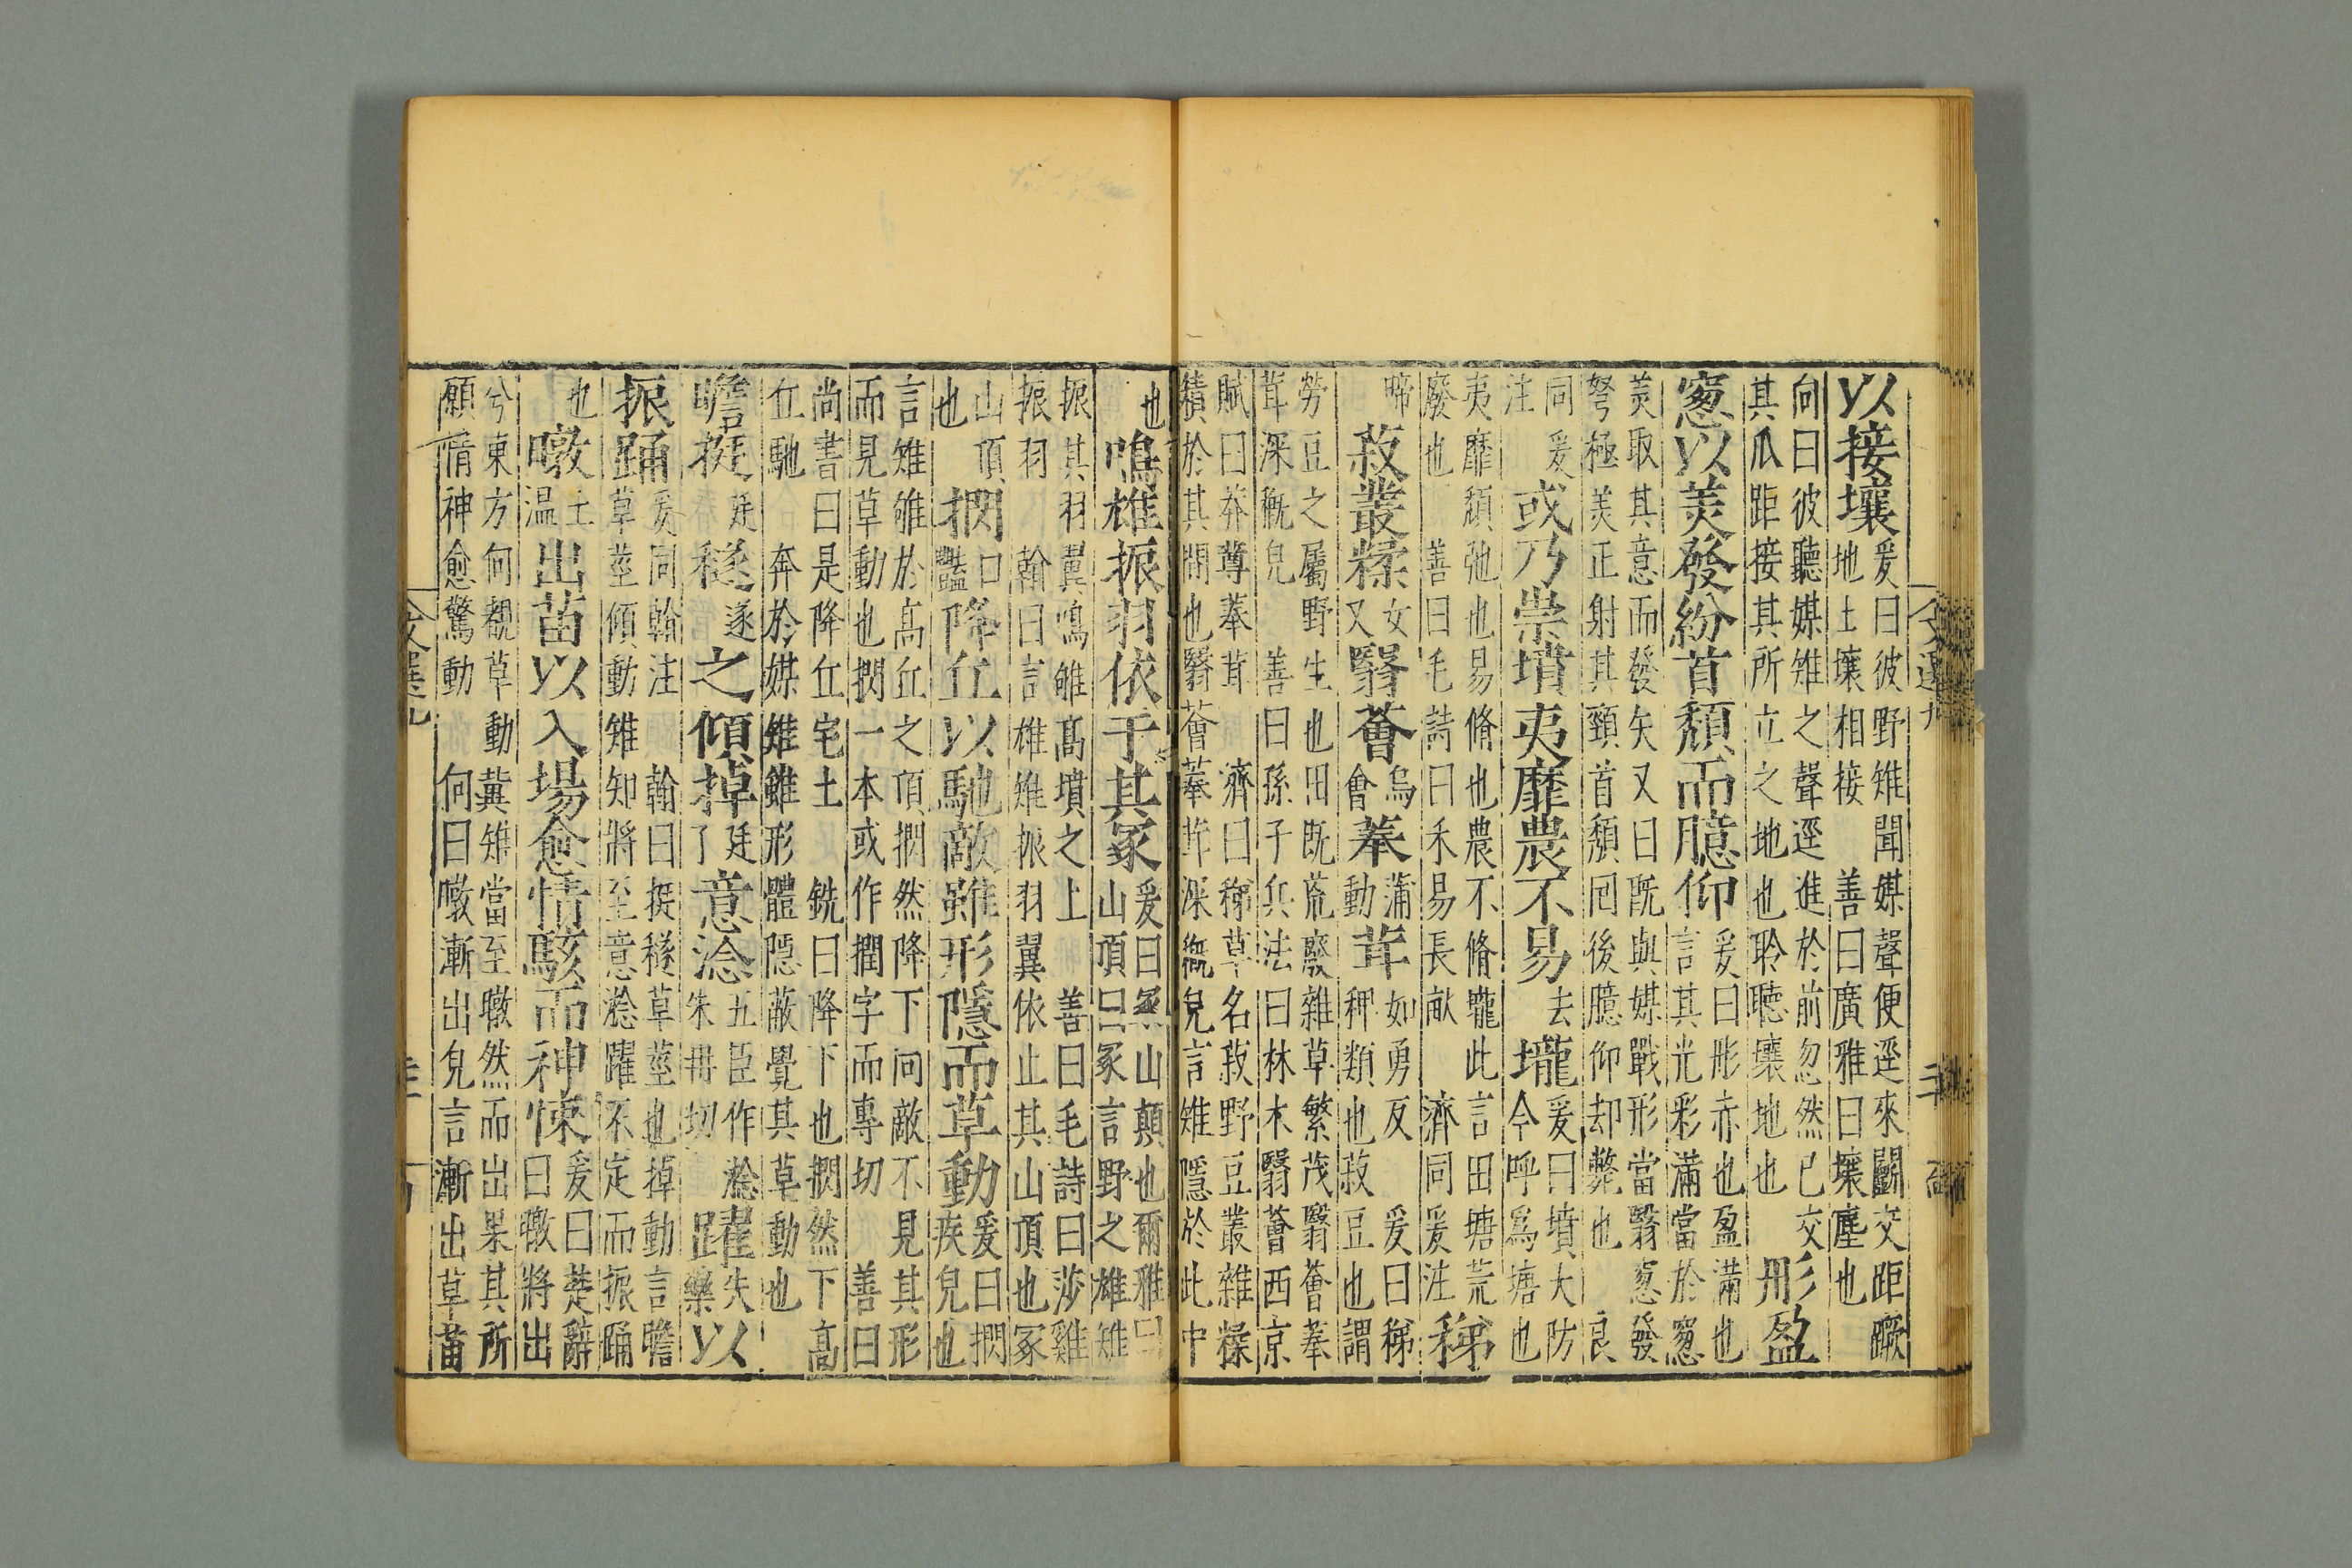 以接壤爰曰彼野雉聞媒聲便逕來鬬交距蹶
地土壤相接 善曰廣雅曰壤塵也
向曰彼聽媒雉之聲逕進於前忽然已交
其爪距接其所立之地也聆聽壤地也 彤盈
窻以美發紛首頹而臆仰爰曰彤赤也盈滿也
言其光彩滿當於窻
美取其意而發矢又曰旣與媒戰形當翳窻發
弩極美正射其頸首頹囘後臆仰却斃也 良
同爰
注 或乃崇墳夷靡農不易去壠爰曰墳大防
今呼爲塘也
夷靡頹弛也易脩也農不脩壠此言田塘荒
廢也 善曰毛詩曰禾易長畝 濟同爰注 稊
啼菽叢糅女又翳薈烏會菶蒲動茸如勇反 爰曰稊
稗類也菽豆也謂
勞豆之屬野生也田旣荒廢雜草繁茂翳薈菶
茸深穊皃 善曰孫子兵法曰林木翳薈西京
賦曰莽蓴菶茸 濟曰稊草名菽野豆叢雜糅
積於其間也翳薈菶茸深穊皃言雉隱於此中
也鳴雄振羽依于其冢爰曰冡山顚也爾雅曰
山頂曰冢言野之雄雉
振其羽翼鳴雊高墳之上 善曰毛詩曰莎雞
振羽 翰曰言雄雉振羽翼依止其山頂也冢
山頂
也 捫口豔降丘以馳敵雖形隱而草動爰曰捫
疾皃也
言雉雊於高丘之頂捫然降下向敵不見其形
而見草動也捫一本或作撊字而專切 善曰
尚書曰是降丘宅土 銑曰降下也捫然下高
丘馳奔於媒雉雖形體隱蔽覺其草動也
瞻挺廷穟遂之傾掉廷了意淰五臣作㴸朱冊切躍失藥以
振踊爰同翰注 翰曰挺穟草莖也掉動言瞻
草莖傾動雉知將至意㴸躍不定而振踊
也暾土溫出苗以入場愈情駭而神悚爰曰楚辭
曰暾將出
兮東方何覩草動冀雉當至暾然而出杲其所
願情神愈驚動 向曰暾漸出皃言漸出草苗